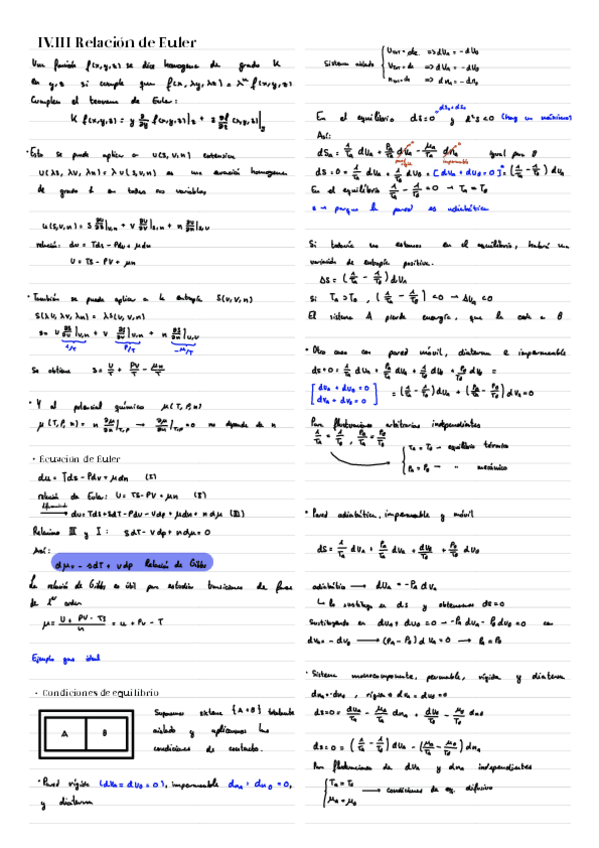 IV.III Relación de Euler
Una función f(x,y,z) se dice homogénea de grado K
en y,z si cumple que f(x, λy, λz) = λᴷ f(x,y,z)
Cumplen el teorema de Euler:
K f(x,y,z) = y ∂/∂y f(x,y,z)|z + z ∂f/∂z (x,y,z)|y
· Esto se puede aplicar a U(S,V,n) extensiva
U(λS, λV, λn) = λU(S,V,n) es una ecuación homogénea
de grado 1 en todas sus variables
U(S,V,n) = S ∂U/∂S|V,n + V ∂U/∂V|S,n + n ∂U/∂n|S,V
relación: dU = Tds - PdV + μdn
U = TS - PV + μn
· También se puede aplicar a la entropía S(U,V,n)
S(λU, λV, λn) = λS(U,V,n)
S = U ∂S/∂U|V,n + V ∂S/∂V|U,n + n ∂S/∂n|U,V
1/T P/T -μ/T
Se obtiene S = U/T + PV/T - μn/T
· Y al potencial químico μ(T,P,n)
μ(T,P,n) = n ∂μ/∂n|T,P → ∂μ/∂n|T,P = 0 no depende de n
· Ecuación de Euler
du = Tds - Pdv + μdn (I)
relación de Euler: U = TS - PV + μn (II)
dU = TdS + SdT - PdV - VdP + μdn + ndμ (III)
Relaciono III y I: SdT - VdP + ndμ = 0
Así:
dμ = -sdT + vdp Relación de Gibbs
La relación de Gibbs es útil para estudiar transiciones de fase
de 1er orden
μ = (U + PV - TS)/n = u + Pv - T
Ejemplo gas ideal
· Condiciones de equilibrio
A B
Suponemos sistema {A+B} totalmente
aislado y aplicamos las
condiciones de contacto.
· Pared rígida (dVA = dVB = 0), impermeable dnA = dnB = 0,
y diaterma
Sistema aislado
⇒ dUA = -dUB
⇒ dVA = -dVB
⇒ dnA = -dnB
En el equilibrio dS = 0 y d²S < 0 (hay un máximo)
Así:
dSA = 1/TA dUA + PA/TA dVA - μA/TA dnA igual para B
dS = 0 = 1/TA dUA + 1/TB dUB = [dUA + dUB = 0] = (1/TA - 1/TB) dUA
En el equilibrio 1/TA - 1/TB = 0 → TA = TB
Si todavía no estamos en el equilibrio, habrá una
variación de entropía positiva.
ΔS = (1/TA - 1/TB) dUA
Si TA > TB, (1/TA - 1/TB) < 0 → ΔUA < 0
El sistema A pierde energía, que la cede a B
· Otro caso con pared móvil, diaterma e impermeable
dS = 0 = 1/TA dUA + PA/TA dVA + 1/TB dUB + PB/TB dVB =
[dUA + dUB = 0
dVA + dVB = 0] = (1/TA - 1/TB) dUA + (PA/TA - PB/TB) dVA = 0
Para fluctuaciones arbitrarias independientes
1/TA = 1/TB, PA/TA = PB/TB
TA = TB - equilibrio térmico
PA = PB - " mecánico
· Pared adiabática, impermeable y móvil
dS = 1/TA dUA + PA/TA dVA + dUB/TB + PB/TB dVB
adiabática → dUA = -PA dVA
↳ lo sustituyo en dS y obtenemos dS = 0
Sustituyendo en dUA + dUB = 0 → -PA dVA - PB dVB = 0 con
dVA = -dVB → (PA - PB) dVA = 0 → PA = PB
· Sistema monocomponente, permeable, rígida y diaterma
dnA = -dnB, rígida ⇒ dVA = dVB = 0
dS = 0 = dUA/TA - μA/TA dnA + dUB/TB - μB/TB dnB
dS = 0 = (1/TA - 1/TB) dUA - (μA/TA - μB/TB) dnA
Para fluctuaciones de dUA y dnA independientes
TA = TB
μA = μB
→ condiciones de eq. difusivo